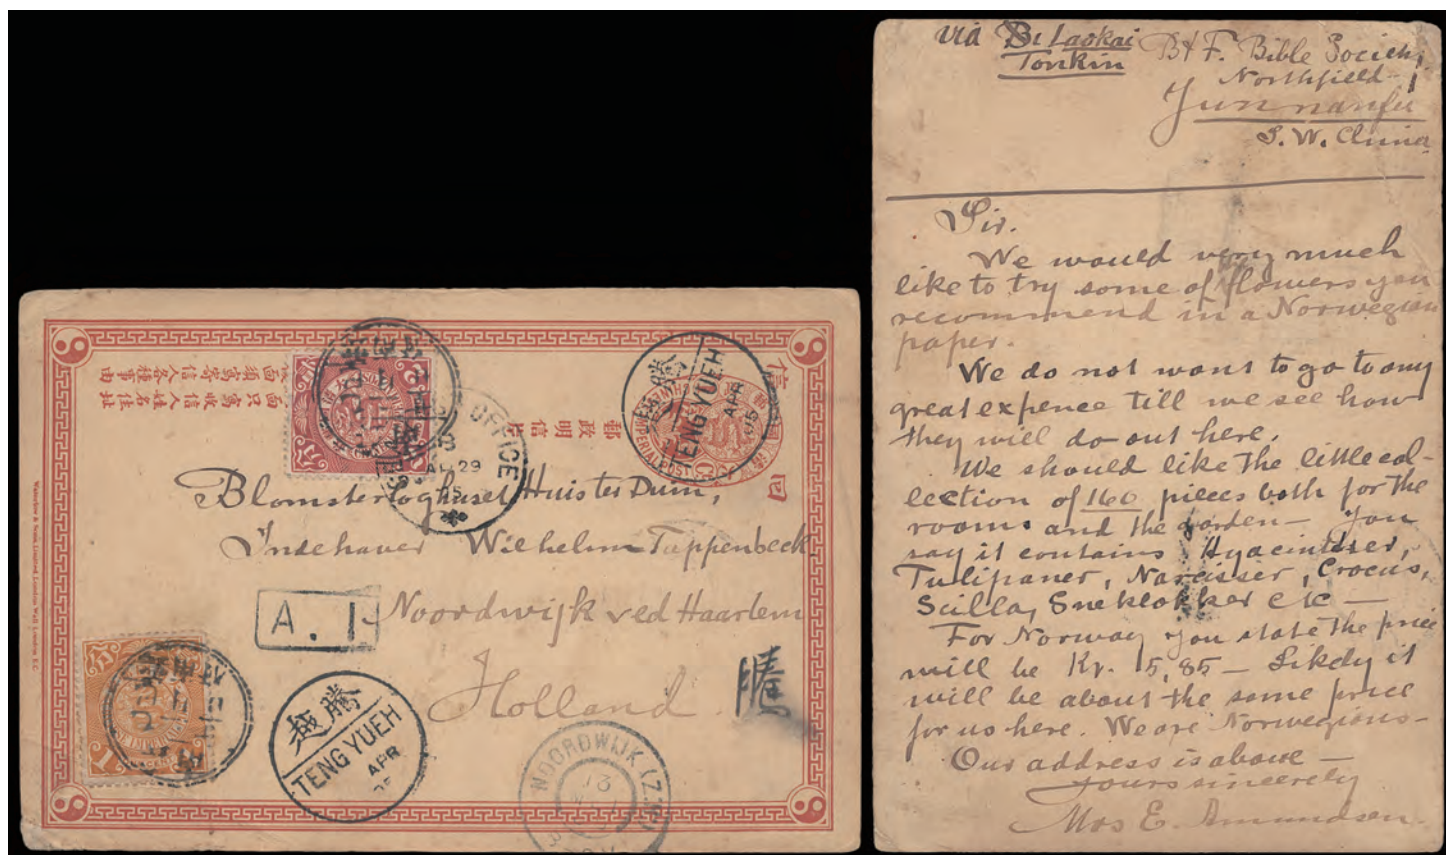 TENG YUEH
APR
05
OFFICE
AP 29
Blomsterloghuset Huis ter Duin,
Indehaver Wilhelm Tappenbeck
Noordwijk ved Haarlem
Holland
A. 1.
騰
越騰
TENG YUEH
APR
NOORDWIJK (Z.H)
1
CENT
郵政明信片
Waterlow & Sons Limited London Wall London E.C.
via Laokai
Tonkin
B & F. Bible Society,
Northfield
Yunnanfu
S. W. China
Sir.
We would very much
like to try some of flowers you
recommend in a Norwegian
paper.
We do not want to go to any
great expence till we see how
they will do out here.
We should like the little col-
lection of 160 pieces both for the
rooms and the garden — you
say it contains Hyacinther,
Tulipaner, Narcisser, Crocus,
Scilla, Sneklokker etc —
For Norway you state the price
will be Kr. 15,85 — Likely it
will be about the same price
for us here. We are Norwegians —
Our address is above —
Yours sincerely
Mrs E. Amundsen.